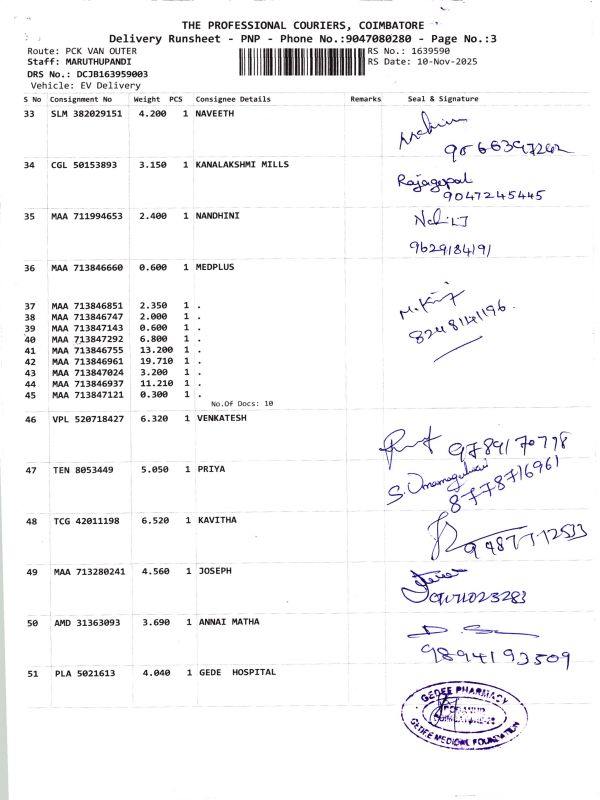 THE PROFESSIONAL COURIERS, COIMBATORE
Delivery Runsheet - PNP - Phone No.:9047080280 - Page No.:3
Route: PCK VAN OUTER RS No.: 1639590
Staff: MARUTHUPANDI RS Date: 10-Nov-2025
DRS No.: DCJB163959003
Vehicle: EV Delivery
S No Consignment No Weight PCS Consignee Details Remarks Seal & Signature
33 SLM 382029151 4.200 1 NAVEETH
34 CGL 50153893 3.150 1 KANALAKSHMI MILLS
Rajagopal
9047245445
35 MAA 711994653 2.400 1 NANDHINI
9629184191
36 MAA 713846660 0.600 1 MEDPLUS
37 MAA 713846851 2.350 1 .
38 MAA 713846747 2.000 1 .
39 MAA 713847143 0.600 1 .
40 MAA 713847292 6.800 1 .
41 MAA 713846755 13.200 1 .
42 MAA 713846961 19.710 1 .
43 MAA 713847024 3.200 1 .
44 MAA 713846937 11.210 1 .
45 MAA 713847121 0.300 1 .
No.Of Docs: 10
46 VPL 520718427 6.320 1 VENKATESH
9789170778
47 TEN 8053449 5.050 1 PRIYA
8778716961
48 TCG 42011198 6.520 1 KAVITHA
49 MAA 713280241 4.560 1 JOSEPH
50 AMD 31363093 3.690 1 ANNAI MATHA
9894193509
51 PLA 5021613 4.040 1 GEDE HOSPITAL
GEDEE PHARMACY
GEDEE MEDICAL FOUNDATION